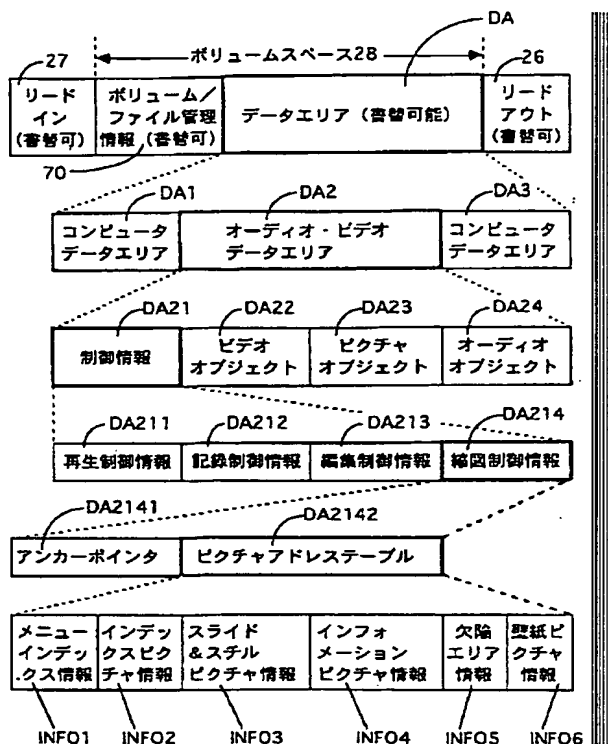 DA
27
ボリュームスペース28
26
リード
イン
(書替可)
ボリューム/
ファイル管理
情報 (書替可)
データエリア (書替可能)
リード
アウト
(書替可)
70
DA1
DA2
DA3
コンピュータ
データエリア
オーディオ・ビデオ
データエリア
コンピュータ
データエリア
DA21
DA22
DA23
DA24
制御情報
ビデオ
オブジェクト
ピクチャ
オブジェクト
オーディオ
オブジェクト
DA211
DA212
DA213
DA214
再生制御情報
記録制御情報
編集制御情報
縮図制御情報
DA2141
DA2142
アンカーポインタ
ピクチャアドレステーブル
メニュー
インデッ
クス情報
インデッ
クスピク
チャ情報
スライド
&スチル
ピクチャ情報
インフォ
メーション
ピクチャ情報
欠陥
エリア
情報
壁紙ピ
クチャ
情報
INFO1
INFO2
INFO3
INFO4
INFO5
INFO6